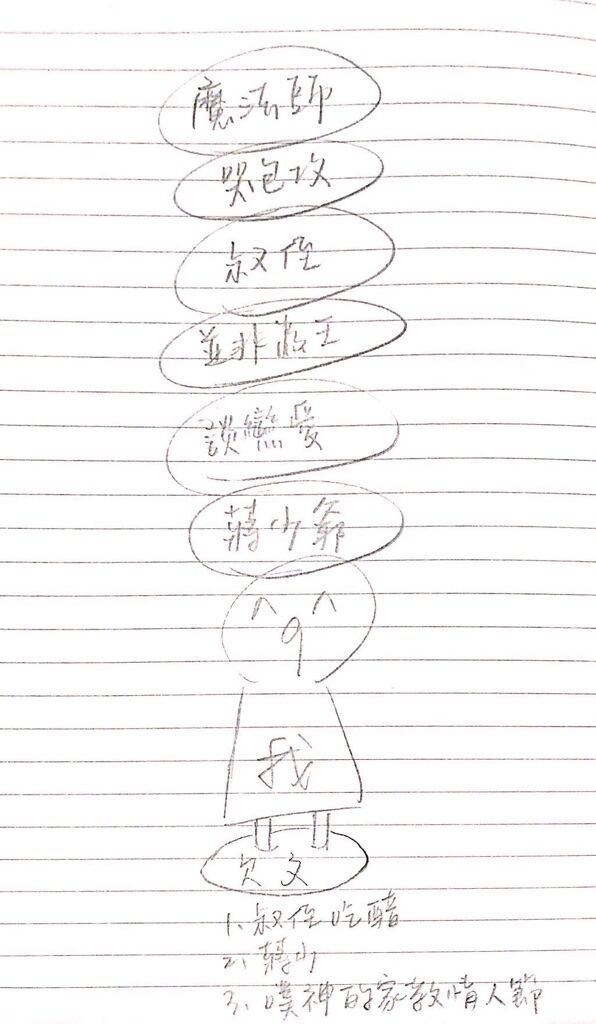 魔法師
哭包攻
叔侄
並非散王
談戀愛
蔣少爺
我
欠文
1、叔侄吃醋
2、蔣少
3、噗神的家教情人節